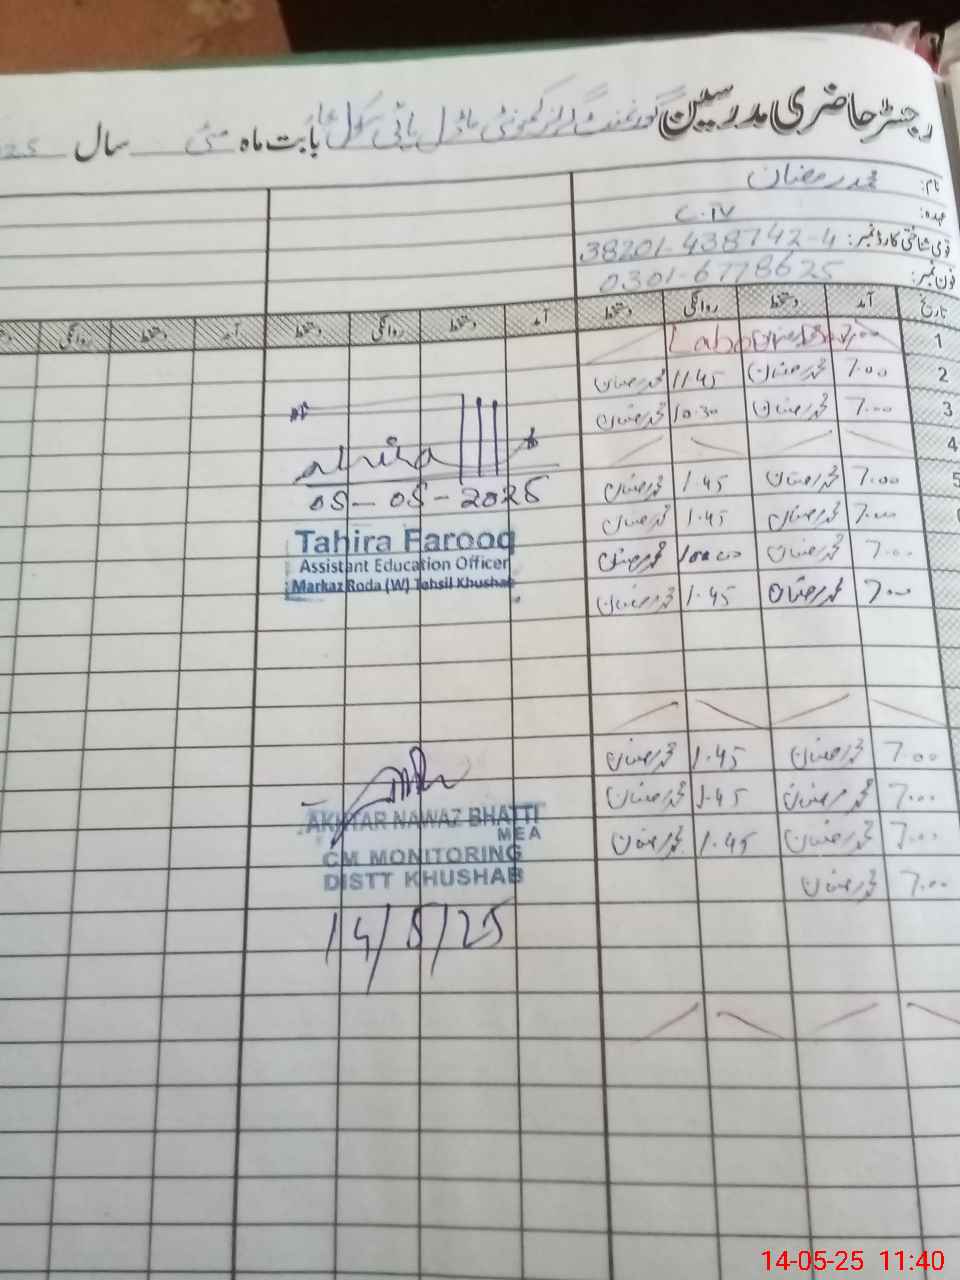 رجسٹر حاضری مدرسین گورنمنٹ گرلز کمیونٹی ماڈل ہائی سکول بابت ماہ مئی سال
نام: محمد رمضان
عہدہ: C.IV
قومی شناختی کارڈ نمبر: 38201-438742-4
فون نمبر: 0301-6778625
تاریخ آمد دستخط روانگی دستخط آمد دستخط روانگی دستخط آمد دستخط روانگی
1 7.00 Labour
2 7.00 محمد رمضان 11.45 محمد رمضان
3 7.00 محمد رمضان 10.30 محمد رمضان
4
5 7.00 محمد رمضان 1.45 محمد رمضان
7.00 محمد رمضان 1.45 محمد رمضان
7.00 محمد رمضان محمد رمضان
7.00 محمد رمضان 1.45 محمد رمضان
7.00 محمد رمضان 1.45 محمد رمضان
7.00 محمد رمضان 1.45 محمد رمضان
7.00 محمد رمضان 1.45 محمد رمضان
7.00 محمد رمضان
05-05-2025
Tahira Farooq
Assistant Education Officer
Markaz Roda (W) Tehsil Khushab
AKHTAR NAWAZ BHATTI
MEA
CM MONITORING
DISTT KHUSHAB
14/5/25
14-05-25 11:40